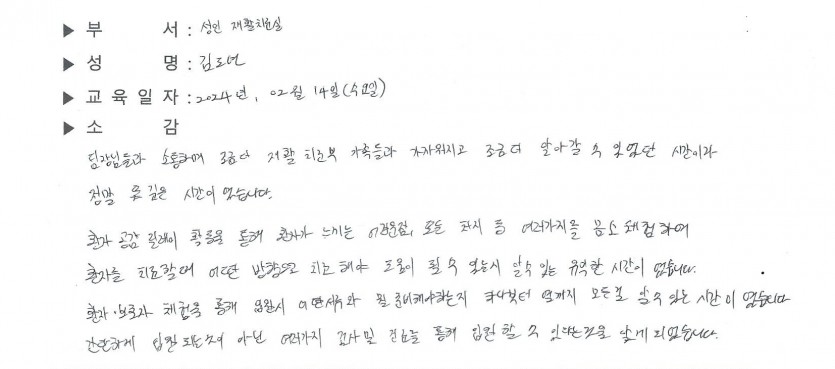 ▶ 부 서 : 성인 재활치료실
▶ 성 명 : 김도연
▶ 교 육 일 자 : 2024년, 02월 14일(수요일)
▶ 소 감
팀장님들과 소통하며 조금더 재활 치료부 가족들과 가까워지고 조금 더 알아갈 수 있었던 시간이라
정말 뜻 깊은 시간이 였습니다.
환자 공감 릴레이 활동을 통해 환자가 느끼는 어려운점, 모든 처지 등 여러가지를 몸소 체험하여
환자를 치료할때 어떤 방향으로 치료해야 도움이 될 수 있는지 알 수 있는 유익한 시간이 였습니다.
환자·보호자 체험을 통해 입원시 어떤서류와 뭘 준비해야하는지 하나부터 열까지 모든걸 알 수 있는 시간이 였습니다
간단하게 입원 되는것이 아닌 여러가지 검사 및 검진을 통해 입원 할 수 있다는것을 알게 되었습니다.